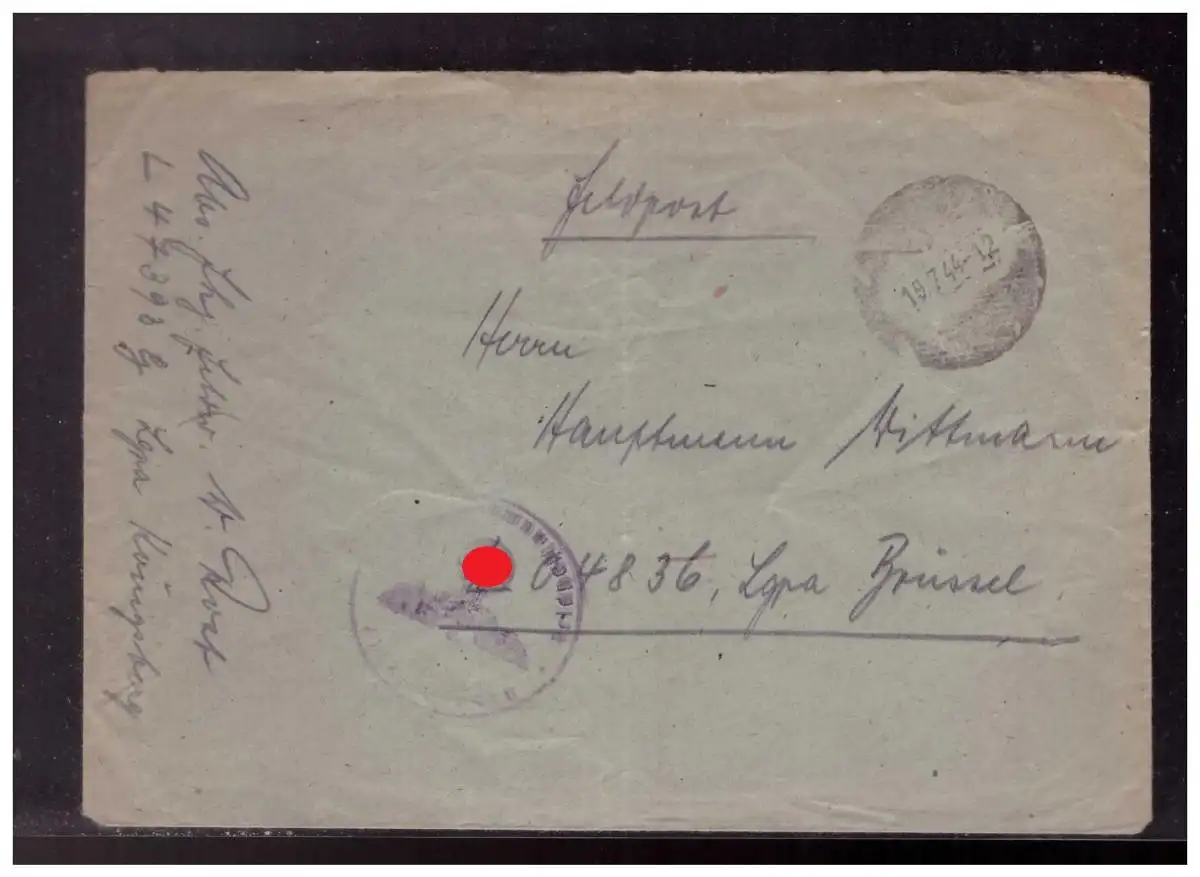 Feldpost
19.7.44-12
Herrn
Hauptmann Wittmann
L 04836, Lgpa Brüssel
Abs. Fhj. Feldw. v.
L 47393 G Lgpa Königsberg